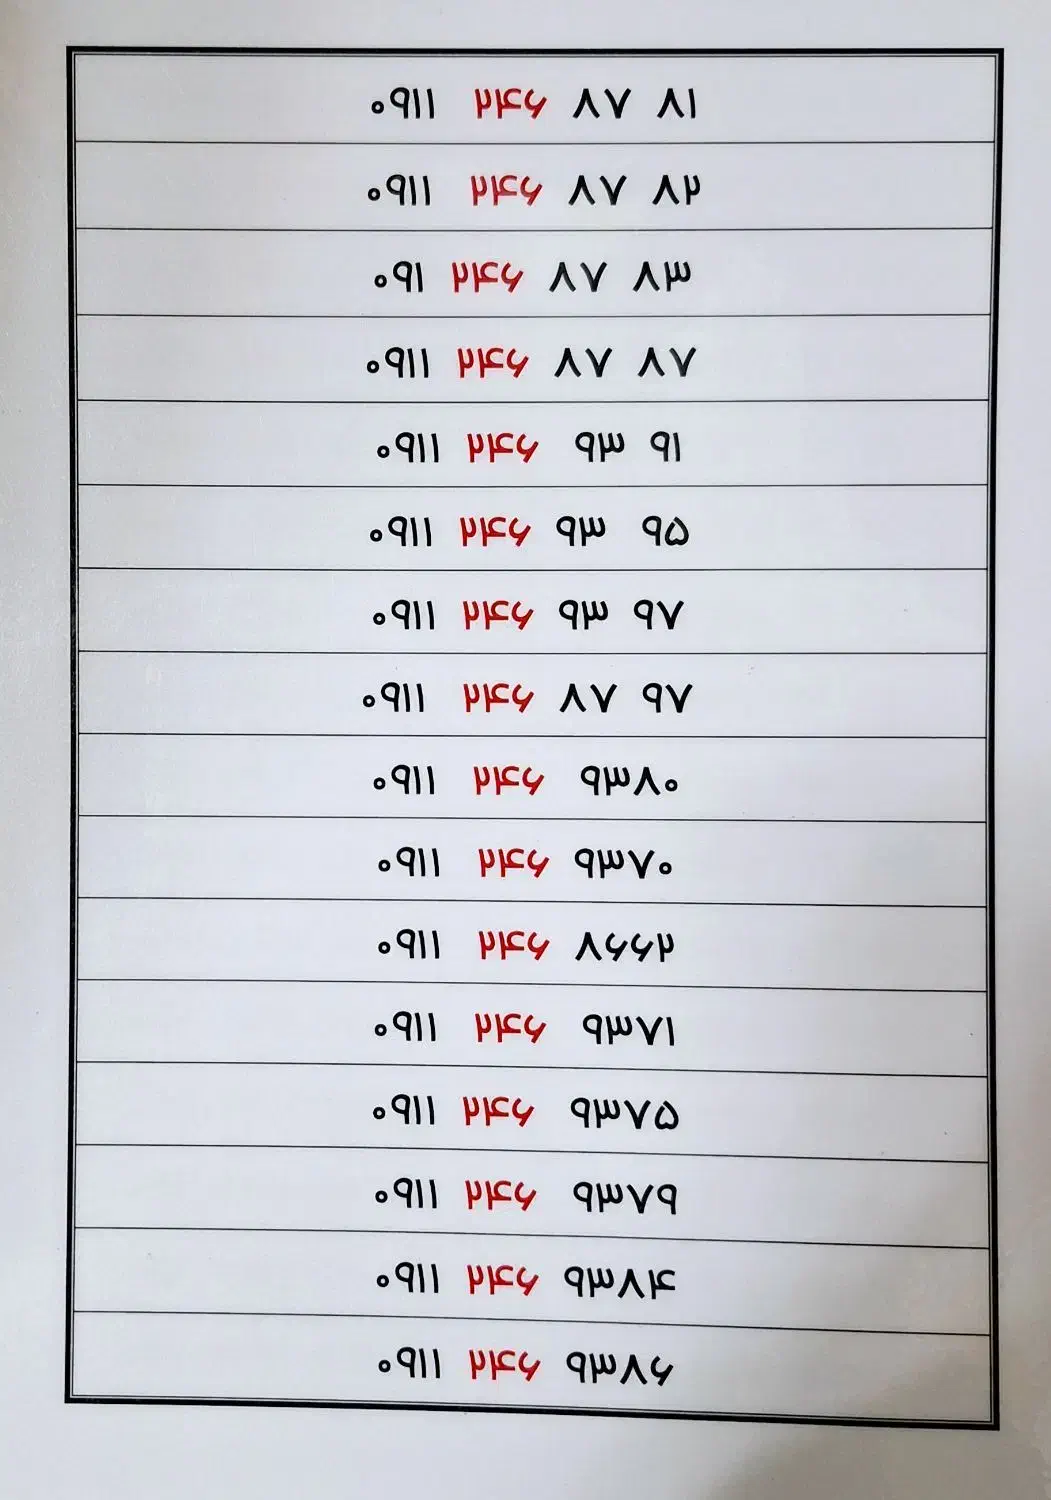 ۰۹۱۱ ۲۴۶ ۸۷ ۸۱
۰۹۱۱ ۲۴۶ ۸۷ ۸۲
۰۹۱ ۲۴۶ ۸۷ ۸۳
۰۹۱۱ ۲۴۶ ۸۷ ۸۷
۰۹۱۱ ۲۴۶ ۹۳ ۹۱
۰۹۱۱ ۲۴۶ ۹۳ ۹۵
۰۹۱۱ ۲۴۶ ۹۳ ۹۷
۰۹۱۱ ۲۴۶ ۸۷ ۹۷
۰۹۱۱ ۲۴۶ ۹۳۸۰
۰۹۱۱ ۲۴۶ ۹۳۷۰
۰۹۱۱ ۲۴۶ ۸۶۶۲
۰۹۱۱ ۲۴۶ ۹۳۷۱
۰۹۱۱ ۲۴۶ ۹۳۷۵
۰۹۱۱ ۲۴۶ ۹۳۷۹
۰۹۱۱ ۲۴۶ ۹۳۸۴
۰۹۱۱ ۲۴۶ ۹۳۸۶